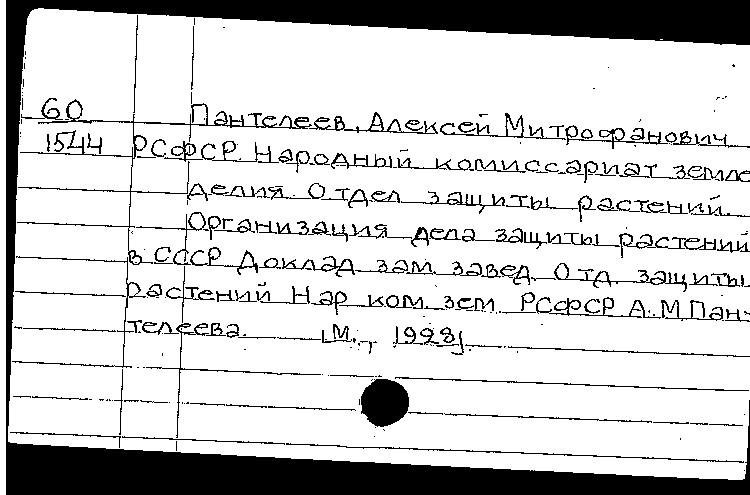 60 Пантелеев, Алексей Митрофанович
1544 РСФСР. Народный комиссариат земле
делия. Отдел защиты растений.
Организация дела защиты растений
в СССР. Доклад зам. завед. Отд. защиты
растений Нар. ком. зем. РСФСР А.М.Пан-
телеева. [М., 1928].